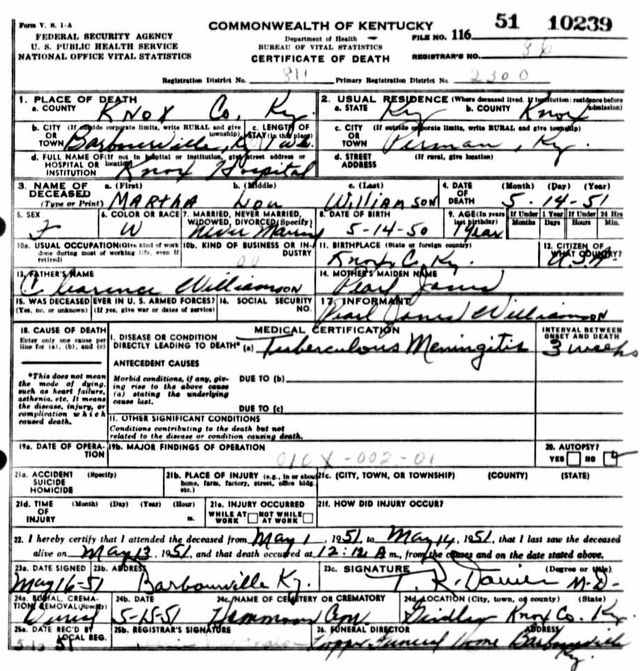 Form V. S. 1-A
FEDERAL SECURITY AGENCY
U. S. PUBLIC HEALTH SERVICE
NATIONAL OFFICE VITAL STATISTICS
COMMONWEALTH OF KENTUCKY
Department of Health
BUREAU OF VITAL STATISTICS
CERTIFICATE OF DEATH
FILE NO. 116 51 10239
REGISTRAR'S NO. 36
Registration District No. 811 Primary Registration District No. 2300
1. PLACE OF DEATH
a. COUNTY Knox Co, Ky.
2. USUAL RESIDENCE (Where deceased lived. If institution: residence before admission)
a. STATE Ky b. COUNTY Knox
b. CITY (If outside corporate limits, write RURAL and give township) OR TOWN Barbourville, Ky
c. LENGTH OF STAY (in this place) 1 Wk.
c. CITY (If outside corporate limits, write RURAL and give township) OR TOWN Permon, Ky.
d. FULL NAME OF (If not in hospital or institution, give street address or location) HOSPITAL OR INSTITUTION Knox Hospital
d. STREET ADDRESS (If rural, give location)
3. NAME OF DECEASED (Type or Print)
a. (First) MARTHA b. (Middle) Lou c. (Last) WilliamSON
4. DATE OF DEATH (Month) (Day) (Year) 5-14-51
5. SEX F
6. COLOR OR RACE W
7. MARRIED, NEVER MARRIED, WIDOWED, DIVORCED (Specify) Never Married
8. DATE OF BIRTH 5-14-50
9. AGE (In years last birthday) 1 year If Under 1 Year Months Days If Under 24 Hrs. Hours Min.
10a. USUAL OCCUPATION (Give kind of work done during most of working life, even if retired)
10b. KIND OF BUSINESS OR INDUSTRY
11. BIRTHPLACE (State or foreign country) Knox Co, Ky.
12. CITIZEN OF WHAT COUNTRY? U.S.A.
13. FATHER'S NAME Clarence Williamson
14. MOTHER'S MAIDEN NAME Pearl Jones
15. WAS DECEASED EVER IN U. S. ARMED FORCES? (Yes, no, or unknown) (If yes, give war or dates of service)
16. SOCIAL SECURITY NO.
17. INFORMANT Pearl Jones Williamson
18. CAUSE OF DEATH
Enter only one cause per line for (a), (b), and (c)
MEDICAL CERTIFICATION
INTERVAL BETWEEN ONSET AND DEATH
I. DISEASE OR CONDITION DIRECTLY LEADING TO DEATH* (a) Tuberculous Meningitis 3 weeks
*This does not mean the mode of dying, such as heart failure, asthenia, etc. It means the disease, injury, or complication which caused death.
ANTECEDENT CAUSES
Morbid conditions, if any, giving rise to the above cause (a) stating the underlying cause last.
DUE TO (b)
DUE TO (c)
II. OTHER SIGNIFICANT CONDITIONS
Conditions contributing to the death but not related to the disease or condition causing death.
19a. DATE OF OPERATION
19b. MAJOR FINDINGS OF OPERATION
010X-002-01
20. AUTOPSY? YES NO
21a. ACCIDENT SUICIDE HOMICIDE (Specify)
21b. PLACE OF INJURY (e.g., in or about home, farm, factory, street, office bldg., etc.)
21c. (CITY, TOWN, OR TOWNSHIP) (COUNTY) (STATE)
21d. TIME OF INJURY (Month) (Day) (Year) (Hour) m.
21e. INJURY OCCURRED WHILE AT WORK NOT WHILE AT WORK
21f. HOW DID INJURY OCCUR?
22. I hereby certify that I attended the deceased from May 1, 1951, to May 14, 1951, that I last saw the deceased
alive on May 13, 1951, and that death occurred at 12:12 A m., from the causes and on the date stated above.
23a. DATE SIGNED May 16-51
23b. ADDRESS Barbourville Ky.
23c. SIGNATURE (Degree or title) T. R. Davies M-D-
24a. BURIAL, CREMATION, REMOVAL (Specify) Burial
24b. DATE 5-15-51
24c. NAME OF CEMETERY OR CREMATORY Hammons Cem
24d. LOCATION (City, town, or county) (State) Girdler Knox Co. Ky.
25a. DATE REC'D BY LOCAL REG.
25b. REGISTRAR'S SIGNATURE
26. FUNERAL DIRECTOR ADDRESS
Funeral Home Barbourville Ky.